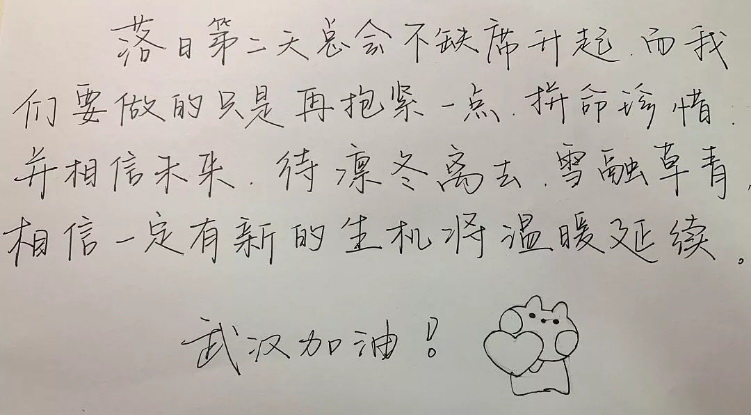 落日第二天总会不缺席升起,而我
们要做的只是再抱紧一点,拼命珍惜,
并相信未来,待凛冬离去,雪融草青,
相信一定有新的生机将温暖延续。
武汉加油!